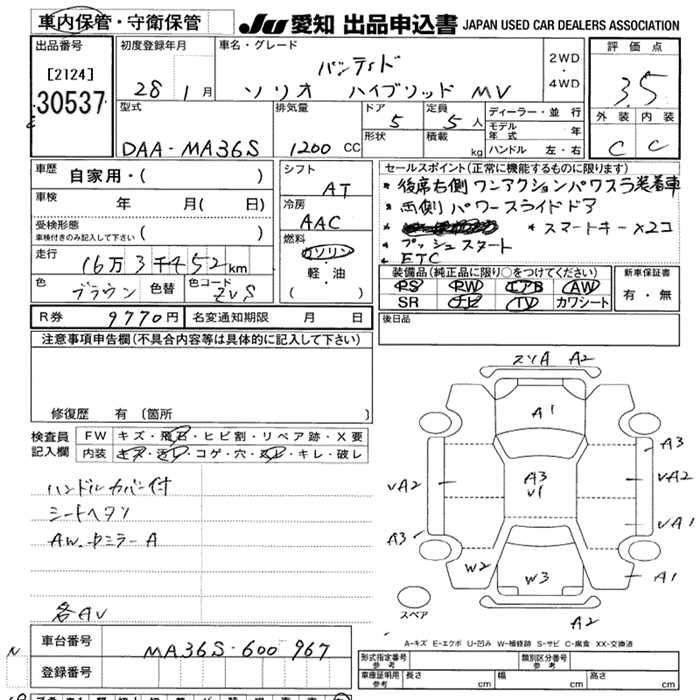 車内保管・守衛保管
JU 愛知 出品申込書 JAPAN USED CAR DEALERS ASSOCIATION
出品番号
[2124]
30537
初度登録年月
28 1月
車名・グレード
バンディド
ソリオ ハイブリッド MV
2WD
・
4WD
評価点
3.5
外装 内装
C C
型式
DAA-MA36S
排気量
1200 CC
ドア
5
形状
定員
5人
積載
kg
ディーラー・並行
モデル年式 年
ハンドル 左・右
車歴
自家用・( )
車検
年 月( 日)
受検形態
車検付きのみ記入して下さい ( )
走行
16万3千452km
色
ブラウン
色替
色コード
ZVS
シフト
AT
冷房
AAC
燃料
ガソリン
軽・油
( )
セールスポイント(正常に機能するものに限ります)
* 後席右側ワンアクションパワスラ装着車
* 両側パワースライドドア
* スマートキー×2コ
* プッシュスタート
* ETC
装備品(純正品に限り○をつけてください)
PS PW エアB AW
SR ナビ TV カワシート
新車保証書
有・無
R券 9770円
名変通知期限 月 日
後日品
注意事項申告欄(不具合内容等は具体的に記入して下さい)
修復歴 有(箇所 )
検査員記入欄
FW キズ・飛石・ヒビ割・リペア跡・X要
内装 キズ・汚レ・コゲ・穴・スレ・キレ・破レ
ハンドルカバー付
シートヘタリ
AW.ドミラーA
各AV
スリA A2
A1
A3
V1
A3
VA2
VA2
VA1
A3
W2
W3
A1
A2
スペア
A-キズ E-エクボ U-凹み W-補修跡 S-サビ C-腐食 XX-交換済
車台番号
MA36S-600967
登録番号
形式指定番号
参考
類別区分番号
参考
車庫証明用
参考
長さ cm 幅 cm 高さ cm